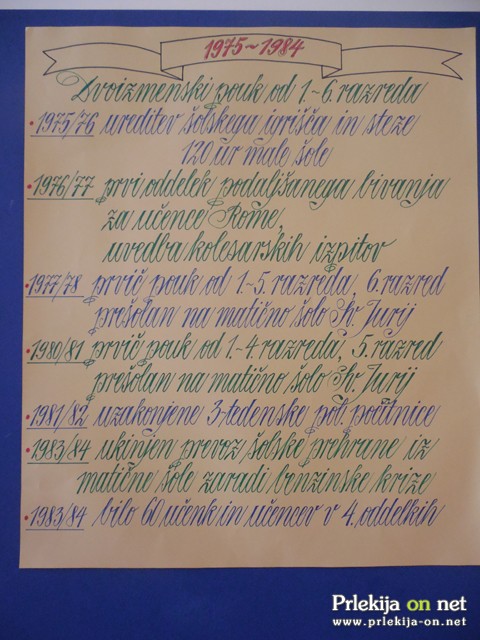 1975~1984
Dvoizmenski pouk od 1.-6. razreda
• 1975/76 ureditev šolskega igrišča in steze
120 ur male šole
• 1976/77 prvi oddelek podaljšanega bivanja
za učence Rome,
uvedba kolesarskih izpitov
• 1977/78 prvič pouk od 1.-5. razreda, 6. razred
prešolan na matično šolo Sv. Jurij
• 1980/81 prvič pouk od 1.-4. razreda, 5. razred
prešolan na matično šolo Sv. Jurij
• 1981/82 uzakonjene 3-tedenske pol. počitnice
• 1983/84 ukinjen prevoz šolske prehrane iz
matične šole zaradi benzinske krize
• 1983/84 bilo 60 učenk in učencev v 4. oddelkih
Prlekija on net
www.prlekija-on.net